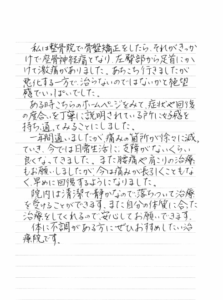 私は整骨院で骨盤矯正をしたら、それがきっか
けで坐骨神経痛となり左臀部から足首にか
けて激痛がありました。あちこち行きましたが
悪化する一方で、治らないのではないかと絶望
感でいっぱいでした。
ある時こちらのホームページをみて、症状や回復
の度合いを丁寧に説明されている所に好感を
持ち、通ってみることにしました。
一年間通いましたが、痛みの箇所が徐々に減っ
ていき、今では日常生活に支障がないくらい
良くなってきました。また膝痛や肩こりの治療
もお願いしましたが、今は痛みが長引くこともな
く、早めに回復するようになりました。
院内は清潔で静かなので落ちついて治療
を受けることができます。また自分の体質に合った
治療をしてくれるので安心してお願いできます。
体に不調がある方にぜひおすすめしたい治
療院です。